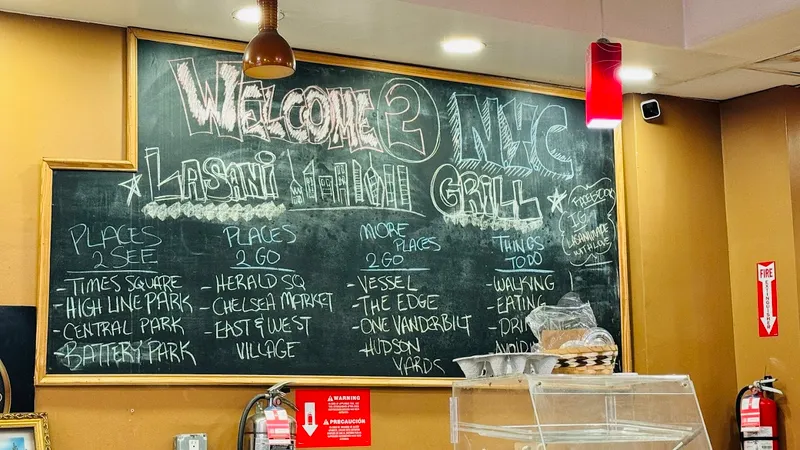 WELCOME 2 NYC
LASANI GRILL
FACEBOOK
IG
PLACES
2 SEE
- TIMES SQUARE
- HIGH LINE PARK
- CENTRAL PARK
- BATTERY PARK
PLACES
2 GO
- HERALD SQ
- CHELSEA MARKET
- EAST & WEST
VILLAGE
MORE
PLACES
2 GO
- VESSEL
- THE EDGE
- ONE VANDERBILT
- HUDSON
YARDS
THINGS
TO DO
- WALKING
- EATING
FIRE
EXTINGUISHER
WARNING
PRECAUCIÓN